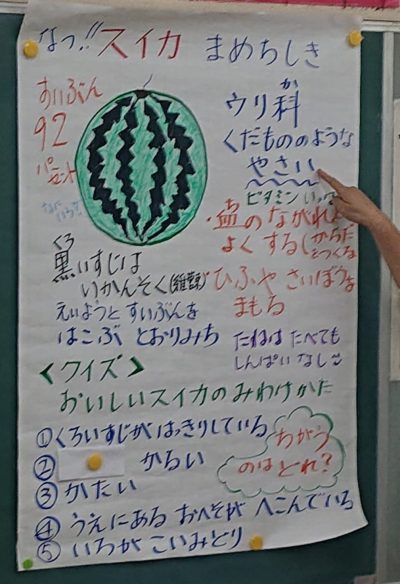 なつ!! スイカ まめちしき
すいぶん
92
パーセント
ウリ科
か
くだもののような
やさい
ビタミン
・血のながれ
よくする(からだ
をつくる
ひふや さいぼうを
まもる
くろ
黒いすじは
いかんそく(維管束)
えいようと すいぶんを
はこぶ とおりみち
たねは たべても
しんぱいなし
<クイズ>
おいしいスイカのみわけかた
①くろいすじがはっきりしている
② かるい
③ かたい
④ うえにある おへそが へこんでいる
⑤ いろが こいみどり
ちがう
のはどれ?